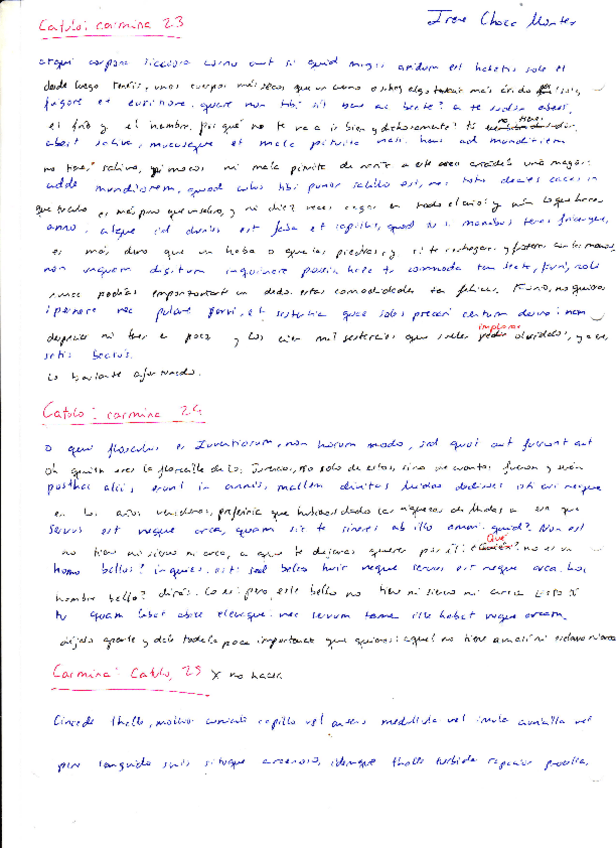 Catulo: carmina 23
Irene Choca Montes
atqui corpora sicciora cornu aut si quid magis aridum est habetis sole et
desde luego tenéis, unos cuerpos más secos que un cuerno o si hay algo todavía más árido por
frigore et esuritione. quare non tibi sit bene ac beate? a te sudor abest,
el frío y el hambre. por qué no te va a ir bien y dichosamente? no tienes
abest saliva, mucusque et mala pituita nasi. hanc ad munditiem
no tienes saliva, ni mocos ni mala pituita de nariz a este aseo añade uno mayor:
adde mundiorem, quod culus tibi purior salillo est, nec toto decies cacas in
que tu culo es más puro que un salero, y ni diez veces cagas en todo el año; y aún lo que haces
anno, atque id durius est faba et lapillis, quod tu si manibus teras fricesque,
es más duro que un haba o que las piedras, y si te restregaras y frotaras con las manos,
non umquam digitum inquinare possis. haec tu commoda tam beata, Furi, noli
nunca podrías emporcarte un dedo. estas comodidades tan felices, Furio, no quieras
spernere nec putare parvi, et sestertia quae soles precari centum desine: nam
despreciar ni tener en poco y los cien mil sestercios que sueles implorar olvídalos, ya eres
satis beatus.
lo bastante afortunado.
Catulo: carmina 24
O qui flosculus es Iuventiorum, non horum modo, sed quot aut fuerunt aut
Oh quien eres la florecilla de los Juvencios, no solo de estos, sino de cuantos fueron y serán
posthac aliis erunt in annis, mallem divitias Midae dedisses isti cui neque
en los años venideros, preferiría que hubieses dado las riquezas de Midas a ese que
servus est neque arca, quam sic te sineres ab illo amari. quid? Non est
no tiene ni siervo ni arca, a que te dejaras querer por él: ¿Qué? no es un
homo bellus? inquies. est: sed bello huic neque servus est neque arca. hoc
hombre bello? dirás. Lo es: pero este bello no tiene ni siervo ni arca esto
tu quam lubet abice elevaque: nec servum tamen ille habet neque arcam.
déjalo aparte y dale toda la poca importancia que quieras: aquel no tiene ni esclavo ni arca
Carmina: Catulo, 25 X no hacer
Cinaede Thalle, mollior cuniculi capillo vel anseris medullula vel imula auricilla vel
pene languido senis situque araneoso, idemque Thalle turbida rapacior procella,